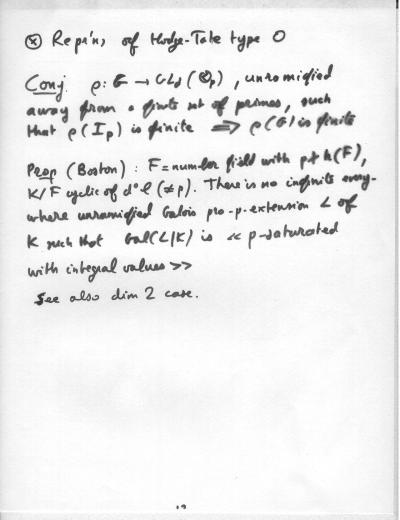 ⊗ Repr'ns of Hodge-Tate type 0
Conj. ρ: G → GL_d(Q_p), unramified
away from a finite set of primes, such
that ρ(I_p) is finite ⇒ ρ(G) is finite
Prop (Boston): F = number field with p ∤ h(F),
K/F cyclic of d° ℓ (≠ p). There is no infinite every-
where unramified Galois pro-p-extension L of
K such that Gal(L/K) is « p-saturated
with integral values »
See also dim 2 case.